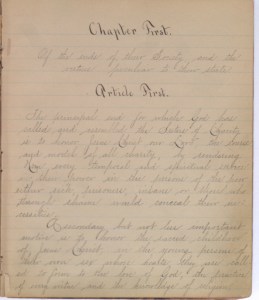 Chapter First.
Of the ends of their Society and the
virtues peculiar to their state
Article First.
The principal end for which God has
called and united the Sisters of Charity
is to honor Jesus Christ our Lord as the source
and model of all charity, by rendering
Him every temporal and spiritual service
in their power in the persons of the poor
either sick, prisoners, insane or others who
through shame would conceal their
A secondary but not less important
motive is to honor the sacred childhood
of Jesus Christ in the young persons of
their own sex whose hearts they are called
to form to the love of God, the practice
of every virtue and the knowledge of religion